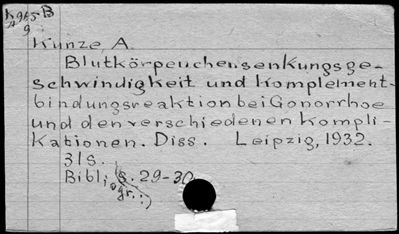 K965-B
9
Kunze, A.
Blutkörpeuchensenkungsge-
schwindigkeit und Komplement-
bindungsreaktion bei Gonorrhoe
und den verschiedenen Kompli-
kationen. Diss. Leipzig, 1932.
31s.
Bibliogr.: s. 29-30.